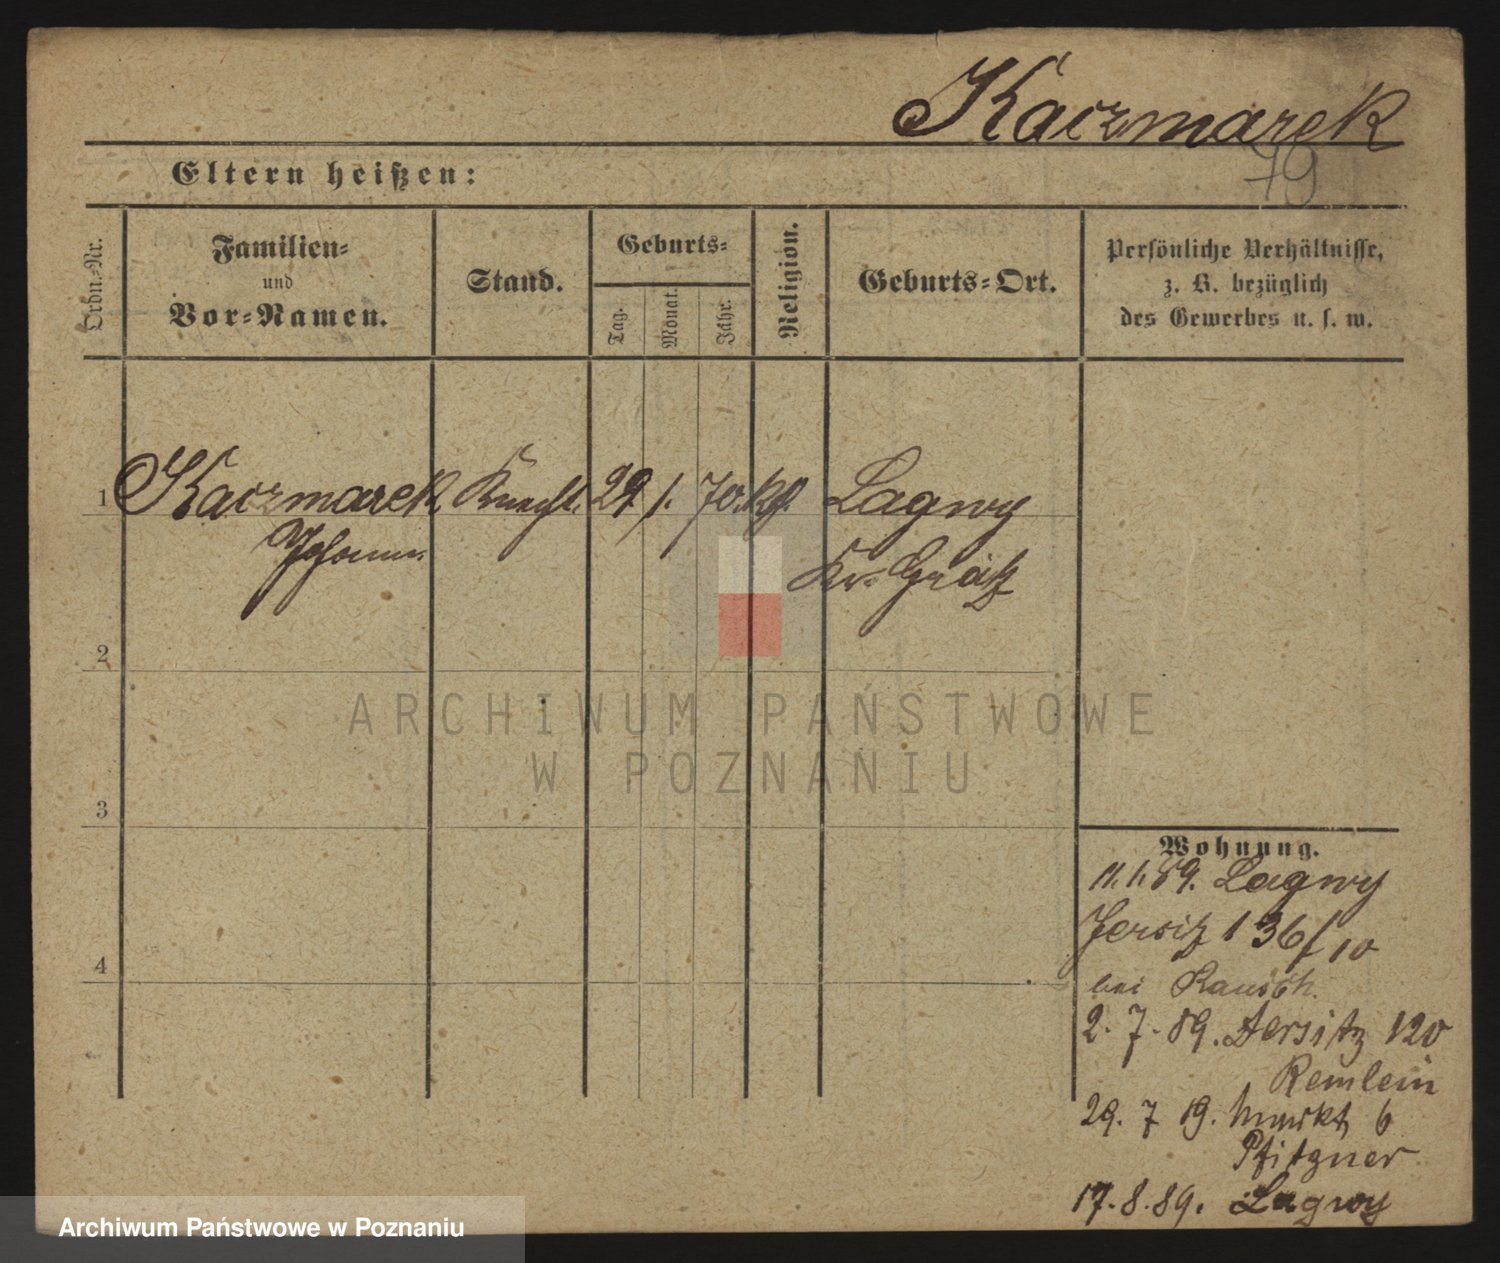 Kaczmarek
79
Eltern heißen:
Ordn.-Nr.
Familien-
und
Vor-Namen.
Stand.
Geburts-
Tag.
Monat.
Jahr.
Religion.
Geburts-Ort.
Persönliche Verhältnisse,
z. B. bezüglich
des Gewerbes u. s. w.
1 Kaczmarek Knecht. 29 1. 70. kt. Lagwy
Johann Kr. Grätz
2
3
4
ARCHIWUM PAŃSTWOWE
W POZNANIU
Wohnung.
11.1.89. Lagwy
Jersitz 136/10
bei Rausch.
2. 7. 89. Jersitz 120
Remlein
29. 7 89. Markt 6
Pfitzner
17.8.89. Lagwy
Archiwum Państwowe w Poznaniu